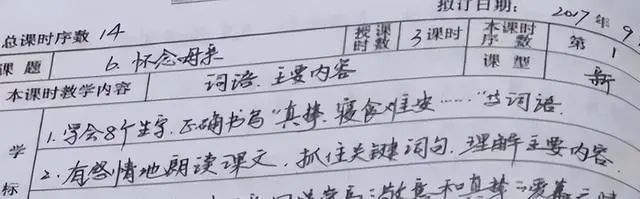 拟订日期: 2017年9
总课时序数 14 授课时数 3课时 本课时序数 第1
课题 6.怀念母亲 课型 新
本课时教学内容 词语、主要内容
学 1.学会8个生字,正确书写“真挚、寝食难安……”等词语.
标 2.有感情地朗读课文,抓住关键词句,理解主要内容.
和真挚的爱慕之情